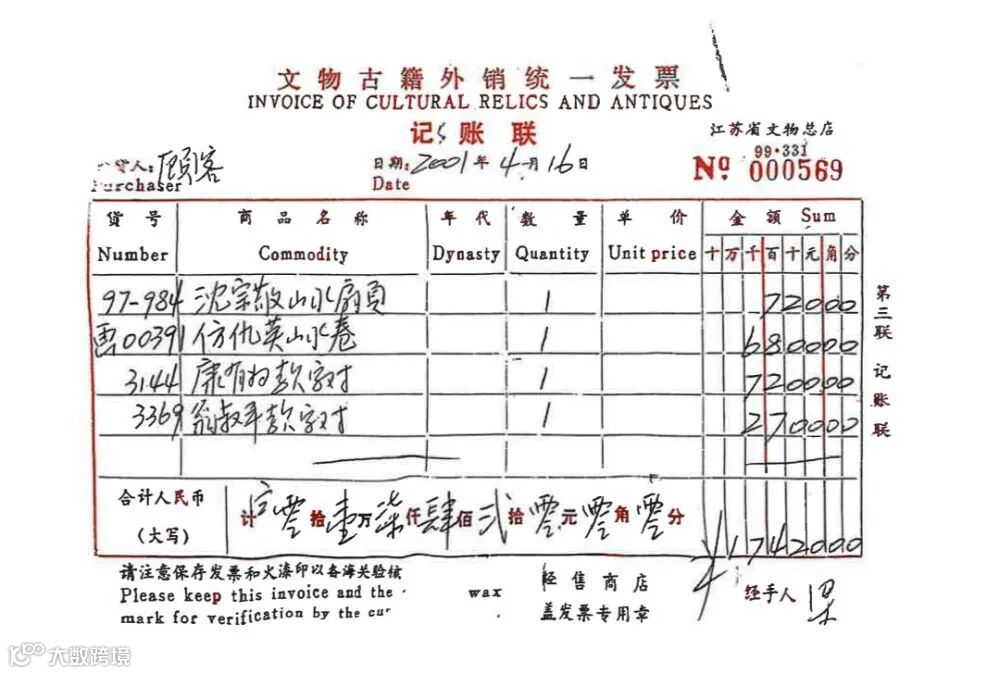 文物古籍外销统一发票
INVOICE OF CULTURAL RELICS AND ANTIQUES
记账联
江苏省文物总店
99·331
货人: 顾客
Purchaser
日期: 2001年4月16日
Date
№ 000569
货号 商品名称 年代 数量 单价 金额 Sum
Number Commodity Dynasty Quantity Unit price 十万千百十元角分
97-984 沈宗敬山水扇页 1 72000
画00391 仿仇英山水卷 1 680000
3144 康有为款字对 1 720000
3369 翁叔平款字对 1 270000
合计人民币
(大写)
计 零拾壹万柒仟肆佰贰拾零元零角零分
¥1742000
第三联 记账联
请注意保存发票和火漆印以备海关验核
Please keep this invoice and the wax
mark for verification by the cus
经售商店
盖发票专用章
经手人 梁
大数跨境